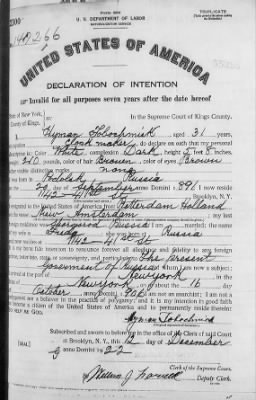 TRIPLICATE
U. S. DEPARTMENT OF LABOR
NATURALIZATION SERVICE
UNITED STATES OF AMERICA
DECLARATION OF INTENTION
Invalid for all purposes seven years after the date hereof
State of New York,
County of Kings,
In the Supreme Court of Kings County.
I, Hyman, aged 31 years,
occupation Cloakmaker, do declare on oath that my personal
description is: Color White, complexion Dark, height 5 feet inches,
weight 210 pounds, color of hair Brown, color of eyes Brown
other visible distinctive marks none
I was born in Podolsk Russia
on the day of September, anno Domini 1891; I now reside
at 1142 - 41st St., Brooklyn, N. Y.
I emigrated to the United States of America from Rotterdam Holland
on the vessel New Amsterdam; my last
foreign residence was Russia; I am married; the name
of my wife is; she was born at Russia
and now resides at 1142 41st St.
It is my bona fide intention to renounce forever all allegiance and fidelity to any foreign
prince, potentate, state, or sovereignty, and particularly to The present
Government of Russia of whom I am now a subject;
I arrived at the port of New York, in the
State of New York, on or about the 16 day
of October, anno Domini 1906; I am not an anarchist; I am not a
polygamist nor a believer in the practice of polygamy; and it is my intention in good faith
to become a citizen of the United States of America and to permanently reside therein:
SO HELP ME GOD.
Hyman
Subscribed and sworn to before me in the office of the Clerk of said Court
at Brooklyn, N. Y., this 12 day of December
anno Domini 1922
[SEAL]
Clerk of the Supreme Court.
Deputy Clerk.